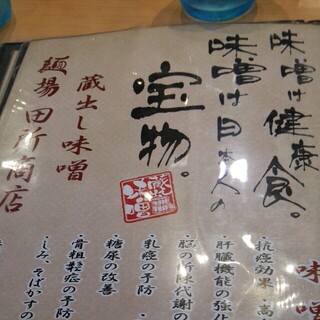 味噌は健康食。
味噌は日本人の
宝物。
蔵出し味噌
麺場 田所商店
味噌
・抗癌効果
・高
・肝臓機能の強化
・脳の新陳代謝の
・乳癌の予防
・糖尿の改善
・骨粗鬆症の予防
・しみ、そばかすの